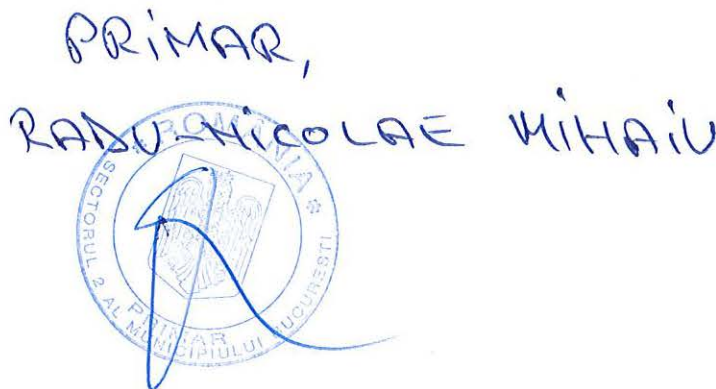 PRIMAR,
RADU-NICOLAE MIHAIU
* ROMÂNIA *
SECTORUL 2 AL MUNICIPIULUI BUCUREŞTI
PRIMAR